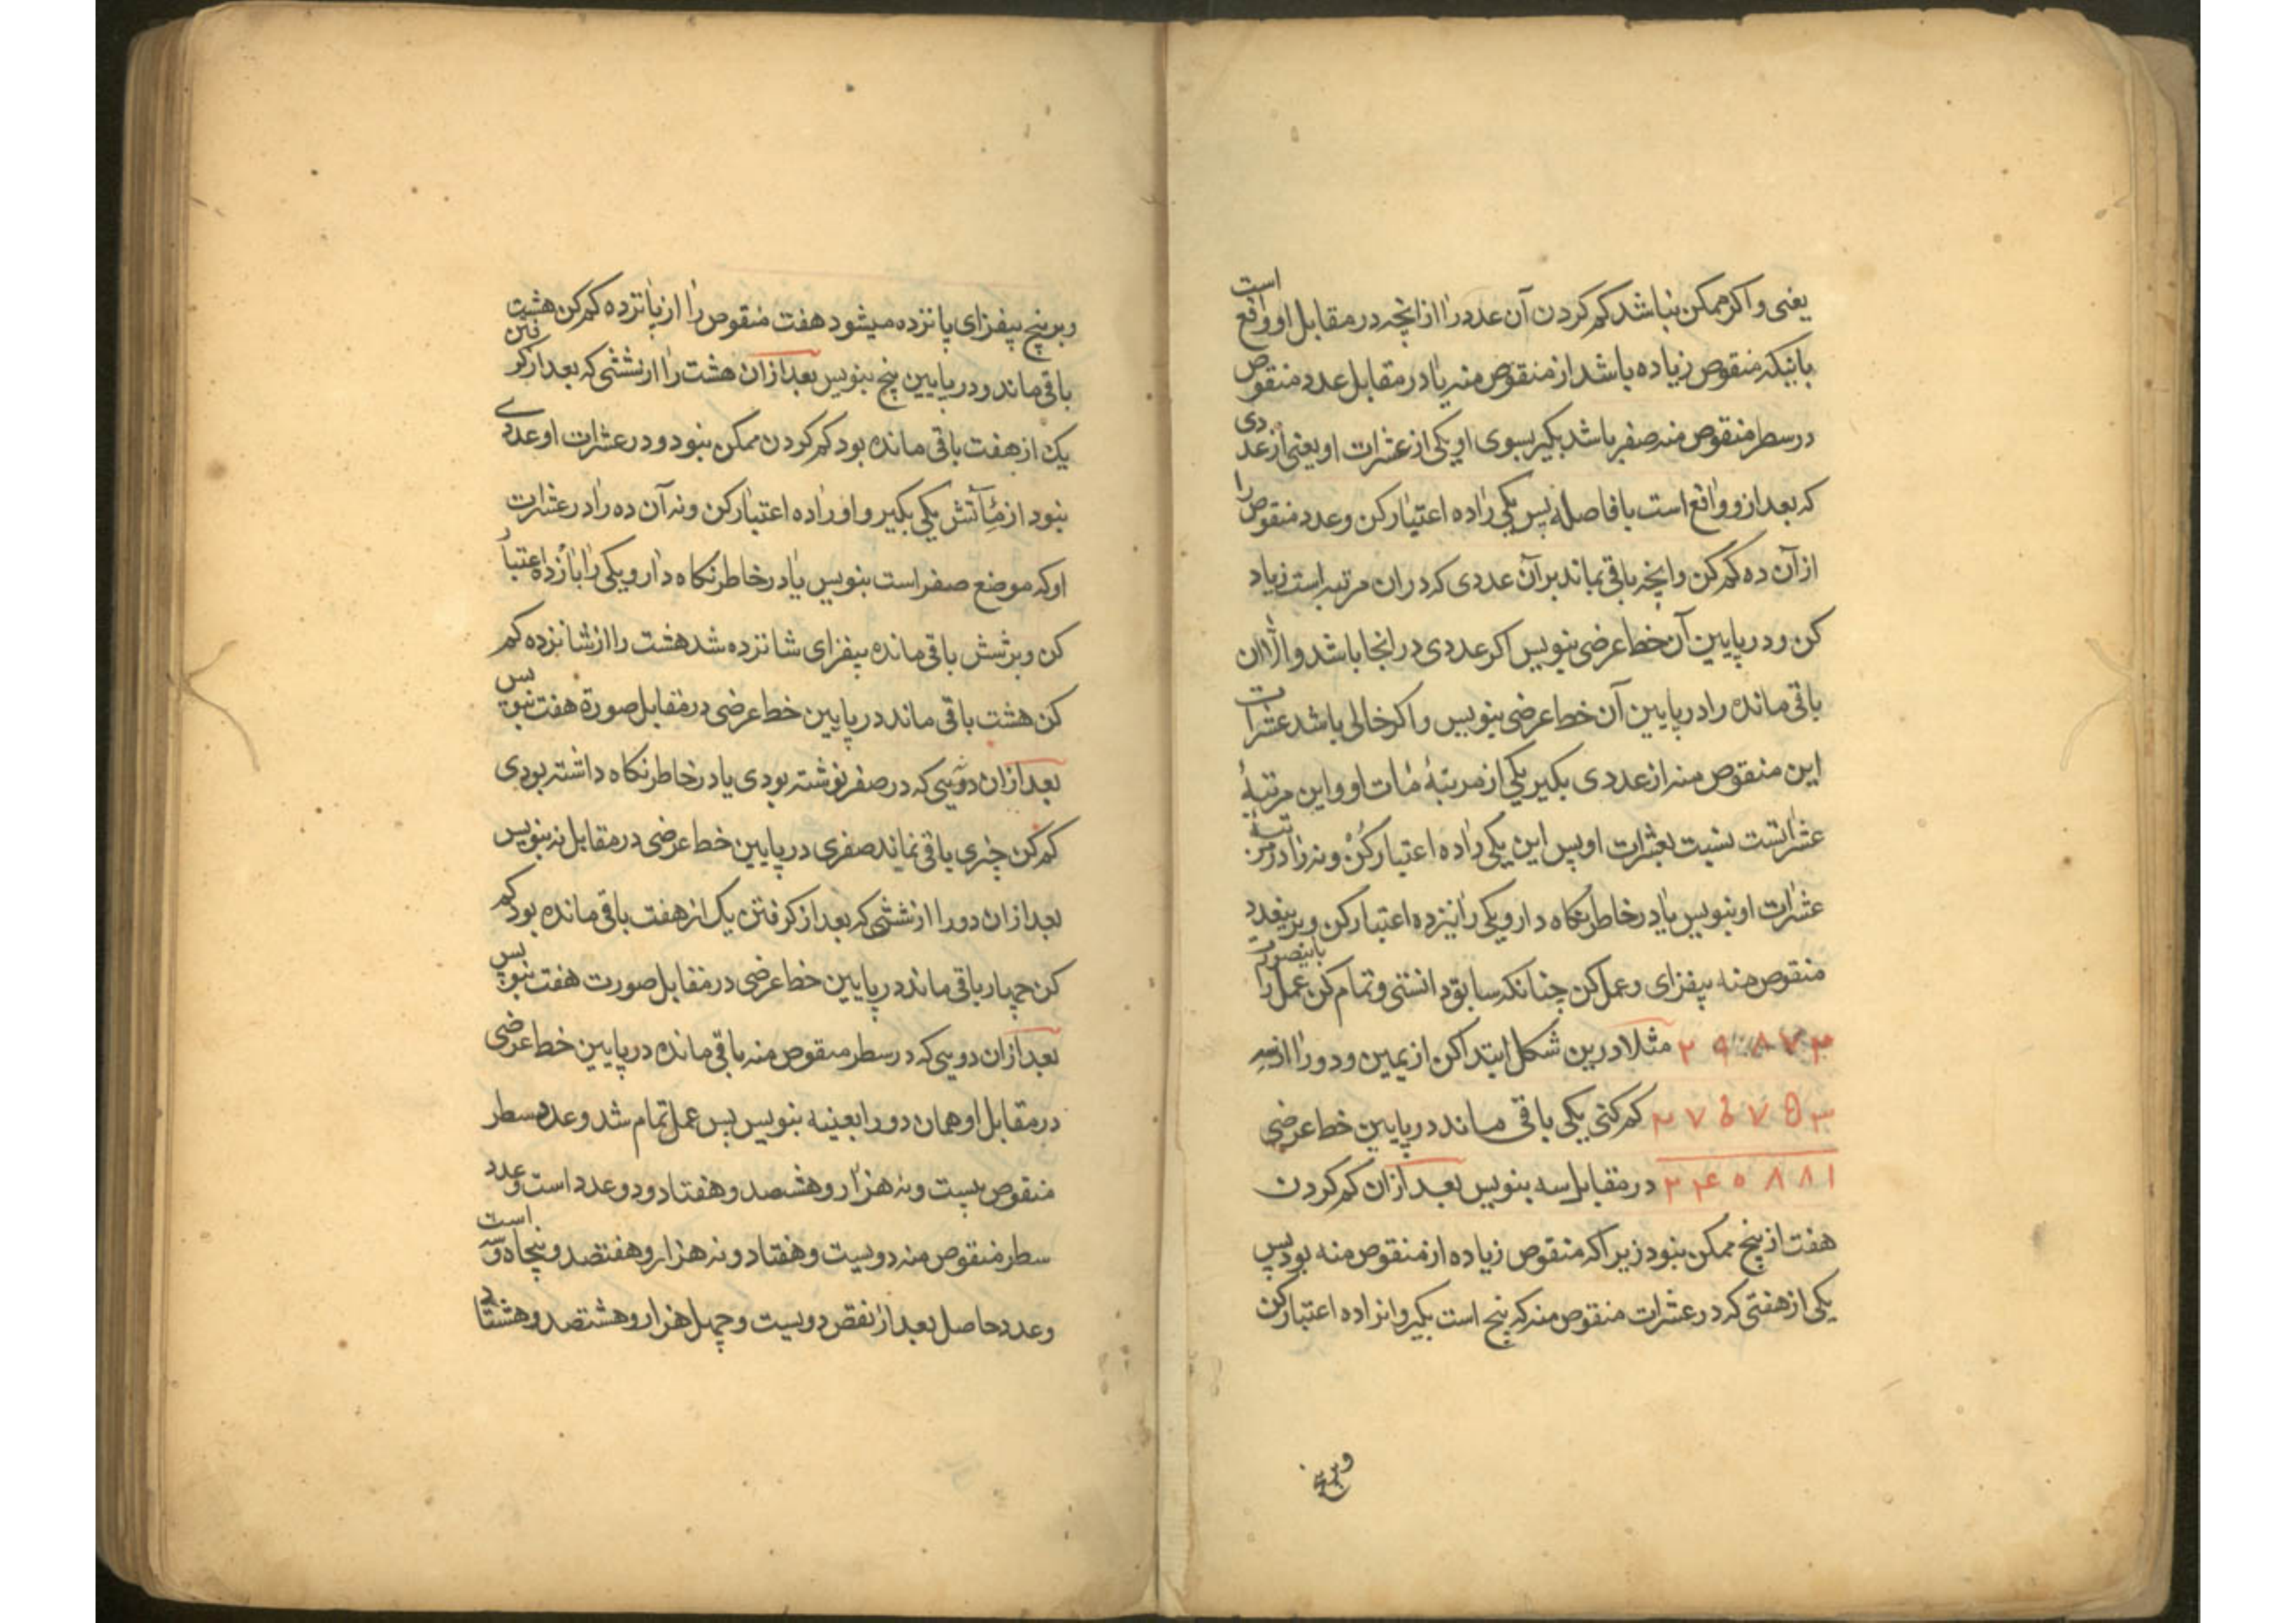 یعنی و اکر ممکن نباشد کم کردن آن عدد را از انچه در مقابل او واقع است
باینکه منقوص زیاده باشد از منقوص منه یا در مقابل عدد منقوص
در سطر منقوص منه صفر باشد بکیر بسوی او یکی از عشرات او یعنی از عددی
که بعد ازو واقع است بافاصله پس یکی را ده اعتبار کن و عدد منقوص را
از آن ده کم کن و انچه باقی بماند بر آن عددی که دران مرتبه است زیاد
کن و در پایین آن خط عرضی بنویس اکر عددی در انجا باشد و الا ان
باقی مانده را در پایین آن خط عرضی بنویس و اکر خالی باشد عشرات
این منقوص منه از عددی بکیر یکی از مرتبهٔ مٔات او و این مرتبهٔ
عشراتست نسبت بعشرات او پس این یکی را ده اعتبار کن و نه را در مرتبهٔ
عشرات او بنویس یا در خاطر نکاه دار و یکی را نیز ده اعتبار کن و بر عدد
منقوص منه بیفزای و عمل کن چنانکه سابق دانستی و تمام کن عمل را باینصورت
مثلا درین شکل ابتدا کن از یمین و دو را از سه
کم کنی یکی باقی ماند در پایین خط عرضی
۲ ۴ ۰ ۸ ۸ ۱ در مقابل سه بنویس بعد ازان کم کردن
هفت از پنج ممکن نبود زیرا که منقوص زیاده از منقوص منه بود پس
یکی از هفتی که در عشرات منقوص منه که پنج است بکیر و انرا ده اعتبار کن
و بر پنج
و بر پنج بیفزای پانزده میشود هفت منقوص را از پانزده کم کن هشت
باقی ماند و در پایین پنج بنویس بعد ازان هشت را از ششی که بعد از کرفتن
یک از هفت باقی مانده بود کم کردن ممکن نبود و در عشرات او عددے
نبود از مٔاتش یکی بکیر و او را ده اعتبار کن و نه آن ده را در عشرات
او که موضع صفر است بنویس یا در خاطر نکاه دار و یکی را باز ده اعتبار
کن و بر شش باقی مانده بیفزای شانزده شد هشت را از شانزده کم
کن هشت باقی ماند در پایین خط عرضی در مقابل صورة هفت بنویس
بعد ازان که در صفر نوشته بودی یا در خاطر نکاه داشته بودی
کم کن چیزی باقی نماند صفری در پایین خط عرضی در مقابل نه بنویس
بعد ازان دو را از ششی که بعد از کرفتن یک از هفت باقی مانده بود کم
کن چهار باقی ماند در پایین خط عرضی در مقابل صورت هفت بنویس
بعد ازان دویی که در سطر منقوص منه باقی مانده در پایین خط عرضی
در مقابل او همان دو را بعینه بنویس پس عمل تمام شد و عدد سطر
منقوص بیست و نه هزار و هشتصد و هفتاد و دو عدد است و عدد
سطر منقوص منه دویست و هفتاد و نه هزار و هفتصد و پنجاه و سه است
و عدد حاصل بعد از نقص دویست و چهل هزار و هشتصد و هشتاد